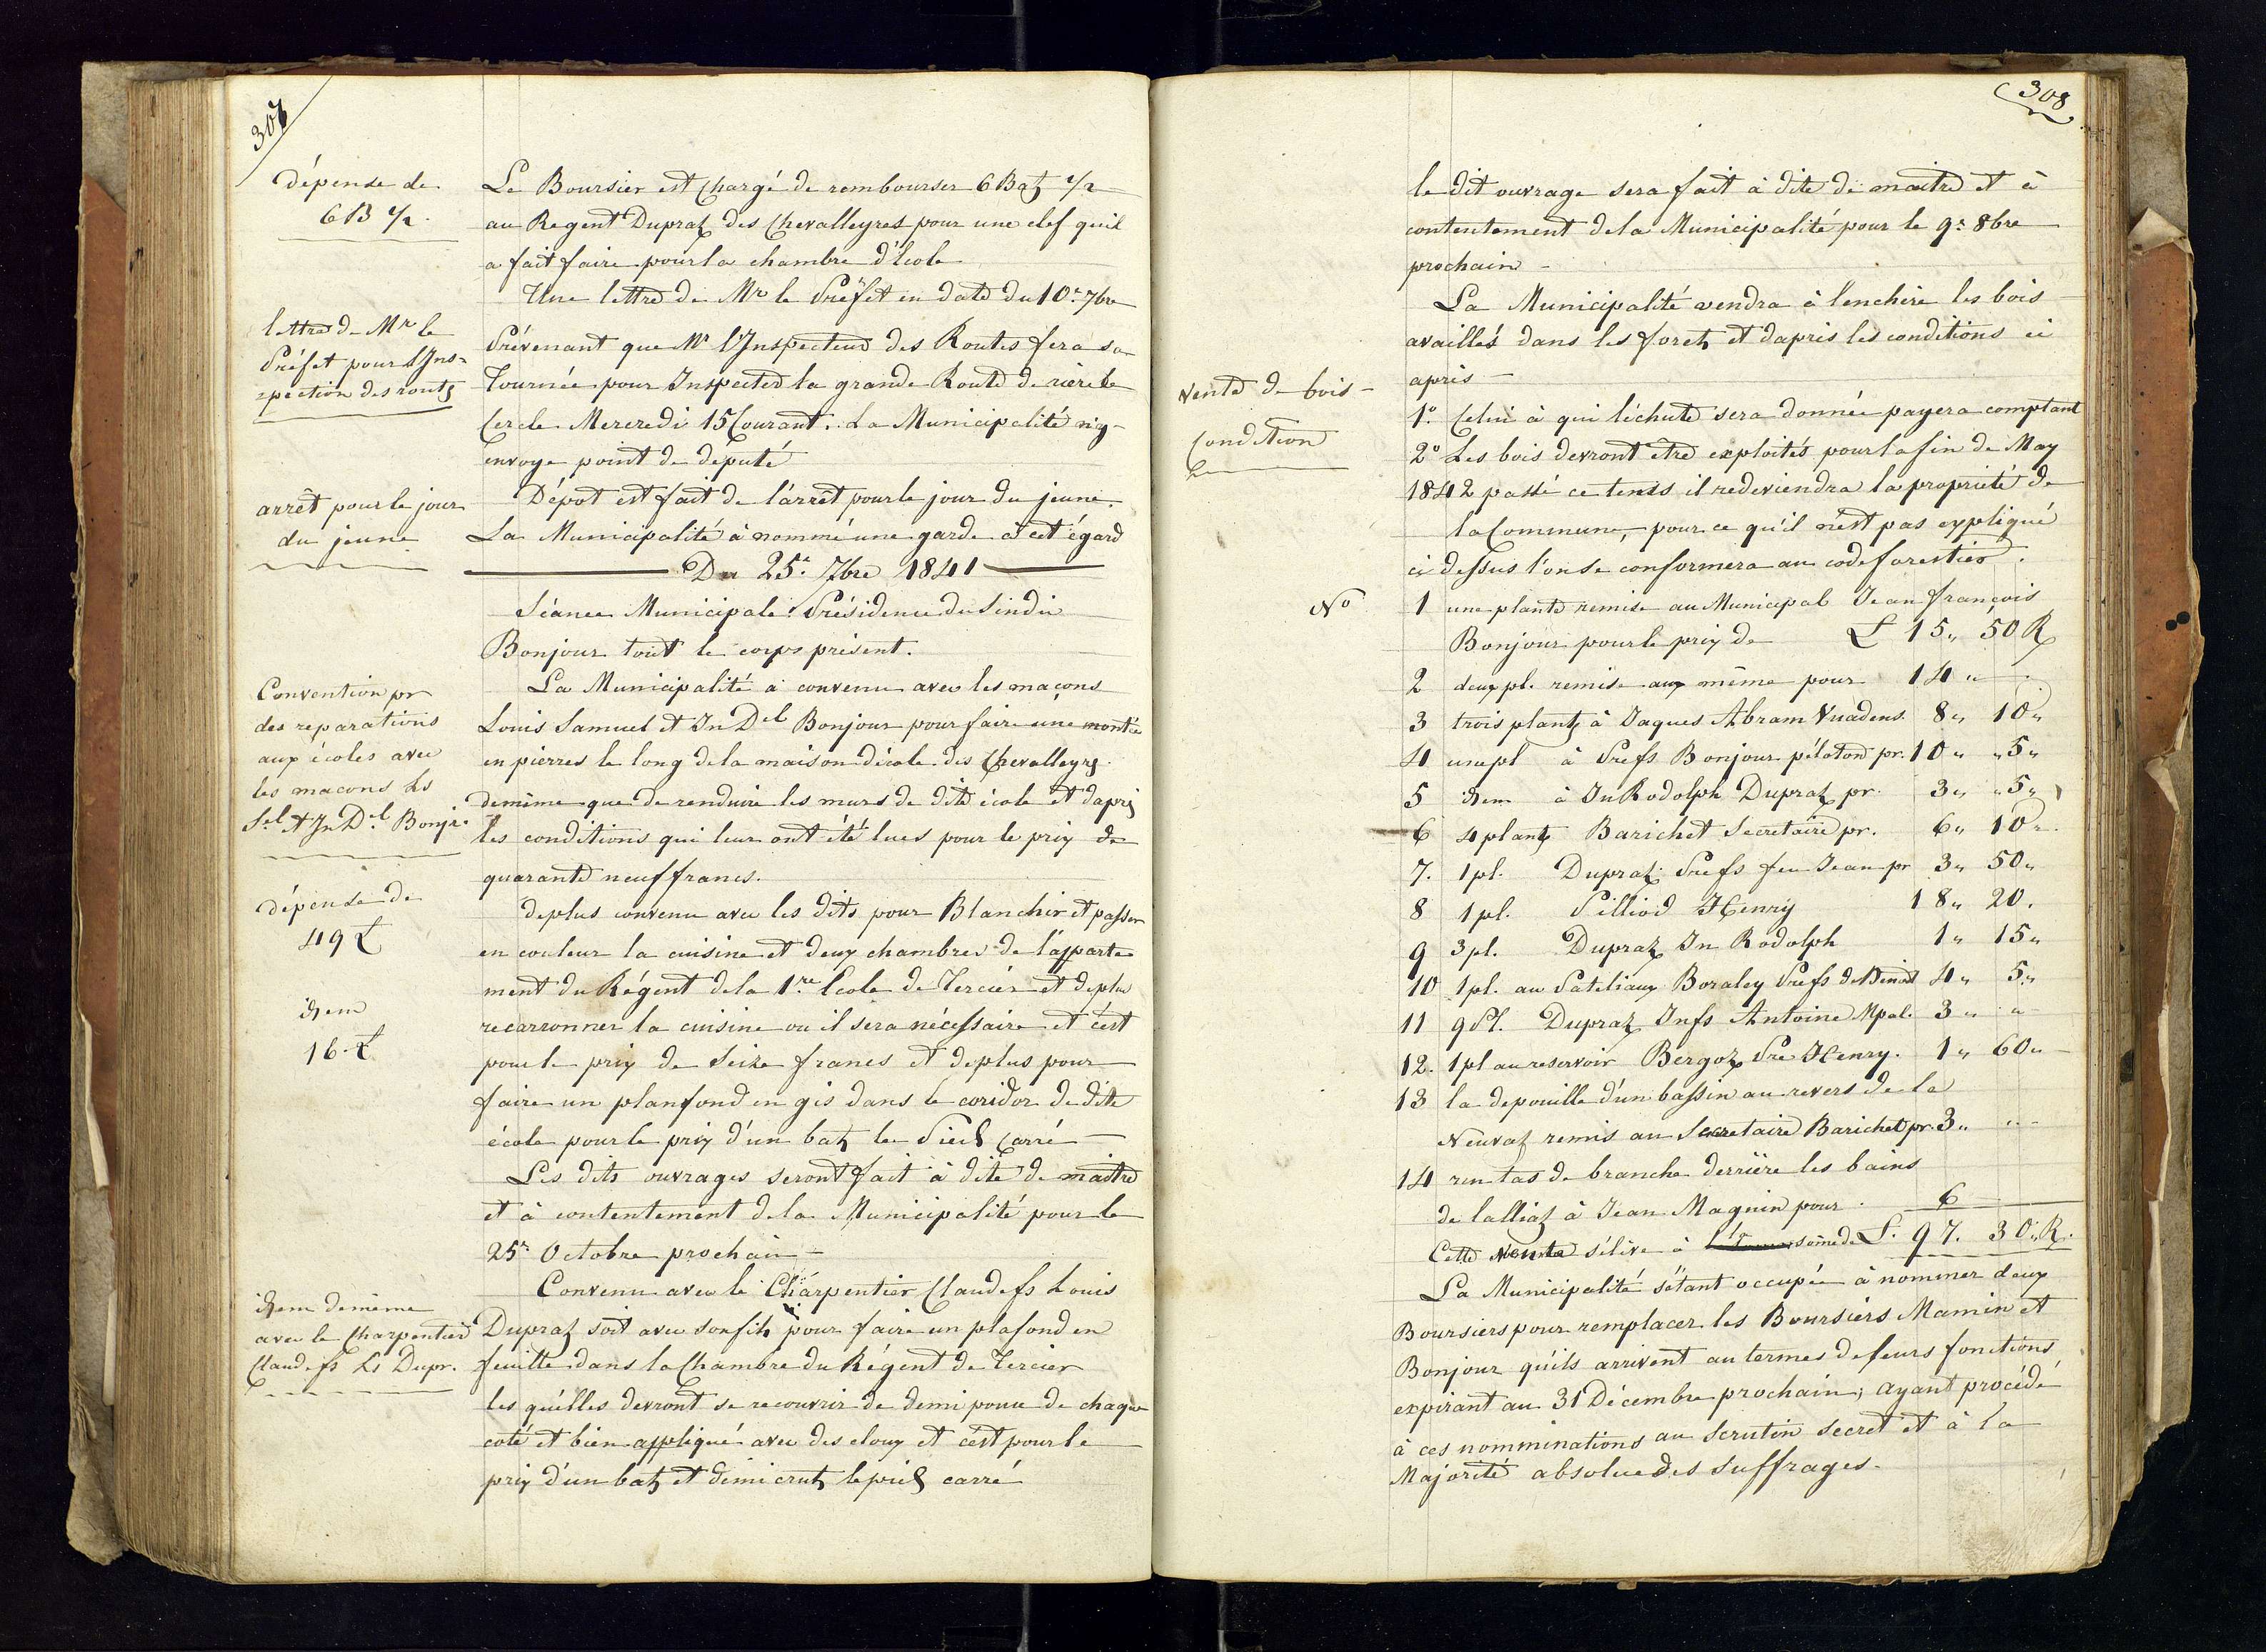 307
dépense de
6 B 1/2.
Le Boursier est Chargé de rembourser 6 Batz 1/2
au Regent Dupraz des Chevalleyres pour une clef quil
a fait faire pour la chambre d'Ecole
lettre de Mr le
Préfet pour l'Ins=
=pection des routs
Une lettre de Mr le Préfet en date du 10e 7bre
Prévenant que Mr l'Inspecteur des Routes fera sa
Tournée pour Inspecter la grande Route de rière le
Cercle Mercredi 15 Courant. La Municipalité n'y
envoye point de député
arrêt pour le jour
du jeune
Dépot est fait de l'arrêt pour le jour du jeune.
La Municipalité à nommé une garde à cet égard
Du 25e 7bre 1841
Séance Municipale Présidence du Sindic
Bonjour tout le corps présent.
Convention pr
des reparations
aux écoles avec
les macons Ls
Sel et Jn Del Bonjr
La Municipalité à convenu avec les maçons
Louis Samuel et Jn Del Bonjour pour faire une montée
en pierres le long de la maison d'école des Chevalleyrs
demême que de renduire les murs de dite école et daprès
les conditions qui leur ont été lues pour le prix de
quarante neuf francs.
dépense de
49 £
deplus convenu avec les dits pour Blanchir et passer
en couleur la cuisine et deux chambres de l'apparte
ment du Régent de la 1re Ecole de Tercier et deplus
recarronner la cuisine ou il sera nécessaire et c'est
pour le prix de Seize francs et deplus pour
faire un planfond en gis dans le coridor de dite
école pour le prix d'un batz le Pied Carré
idem
16 £
Les dits ouvrages seront fait à dite de maître
et à contentement de la Municipalité pour le
25e Octobre prochain
idem demême
avec le Charpentier
Claude fs Ls Dupr.
Convenu avec le Charpentier Claude fs Louis
Dupraz soit avec son fils pour faire un plafond en
feuille dans la Chambre du Régent de Tercier
les quelles devront se recouvrir de demi pouce de chaque
coté et bien appliqué avec des cloux et c'est pour le
prix d'un batz et demi crutz le pied carré
308
le dit ouvrage sera fait à dite de maître et à
contentement de la Municipalité pour le 9e 8bre
prochain
vente de bois
Condition
La Municipalité vendra à lenchère les bois
availlés dans les foretz et daprès les conditions ci
après
1o Celui à qui l'échute sera donnée payera comptant
2o Les bois devront être exploités pour la fin de May
1842 passé ce tems il redeviendra la propriété de
la Commune, pour ce qu'il n'est pas expliqué
ci dessus l'on se conformera au code forestier.
No 1 une plante remise au Municipal Jean françois
Bonjour pour le prix de £ 15 „ 50 R
2 deux pl. remise aux même pour 14 „
3 trois plantz à Jaques Abram Vuadens 8 „ 10 „
4 une pl à Prefs Bonjour péloton pr. 10 „ „ 5 „
5 idem à Jn Rodolph Dupraz pr. 3 „ „ 5 „
6 4 plantz Barichet Secretaire pr. 6 „ 10 „
7. 1 pl. Dupraz Prefs feu Jean pr 3 „ 50 „
8 1 pl. Pilliod Henry 18 „ 20.
9 3 pl. Dupraz Jn Rodolph 1 „ 15 „
10 1 pl. au Pateliaux Boraley Prefs de Benoit 4 „ 5 „
11 9 Pl. Dupraz Jnfs Antoine Mpal. 3 „ „
12. 1 pl au reservoir Bergoz Pre Henry. 1 „ 60 „
13 la depouille d'un bassin au revers de la
Neuvaz remis au Secretaire Barichet pr. 3 „ „
14 un tas de branche derrière les bains
de lalliaz à Jean Magnin pour . 6
Cette vente s'élève à la somme de £. 97. 30 R.
La Municipalité s'étant occupée à nommer deux
Boursiers pour remplacer les Boursiers Mamin et
Bonjour quils arrivent au termes de leurs fonctions
expirant au 31 Décembre prochain, ayant procédé
à ces nomminations au Scrutin secret et à la
Majorité absolue des suffrages.